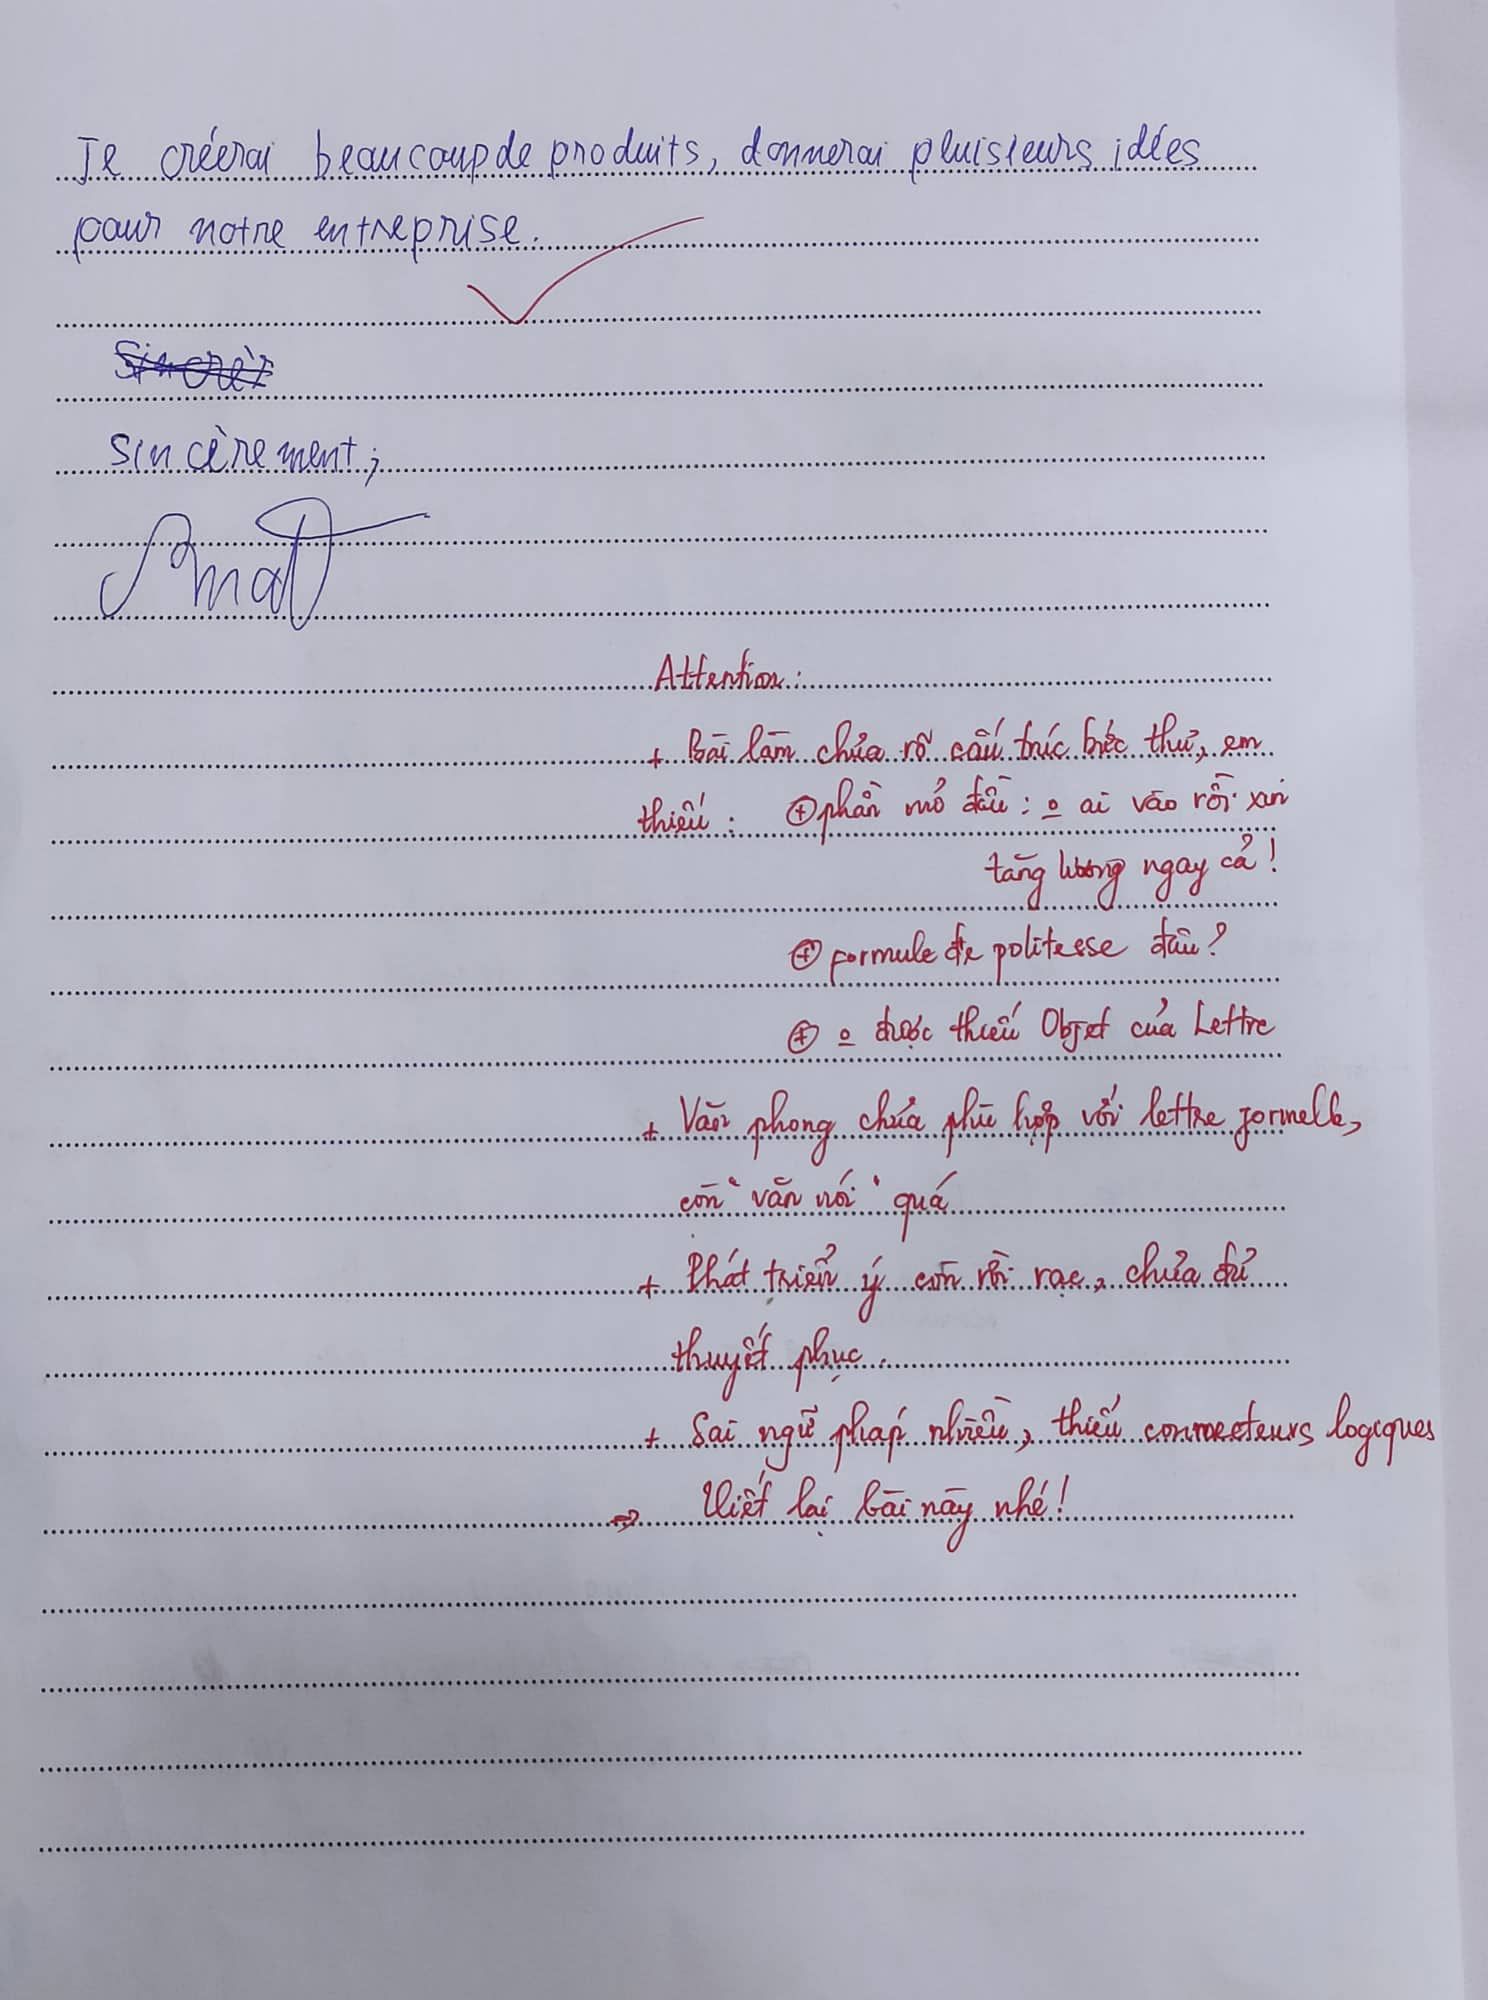 Je créerai beaucoup de produits, donnerai pluisieurs idées
pour notre entreprise.
Sincèrement,
Attention:
+ Bài làm chưa rõ cấu trúc bức thư, em
thiếu: ⊕ phần mở đầu: o ai vào rồi xin
tăng lương ngay cả!
⊕ formule de politesse đâu?
⊕ o được thiếu Objet của Lettre
+ Văn phong chưa phù hợp với lettre formelle,
còn "văn nói" quá
+ Phát triển ý còn rời rạc, chưa đủ
thuyết phục.
+ Sai ngữ pháp nhiều, thiếu connecteurs logiques
⇒ Viết lại bài này nhé!